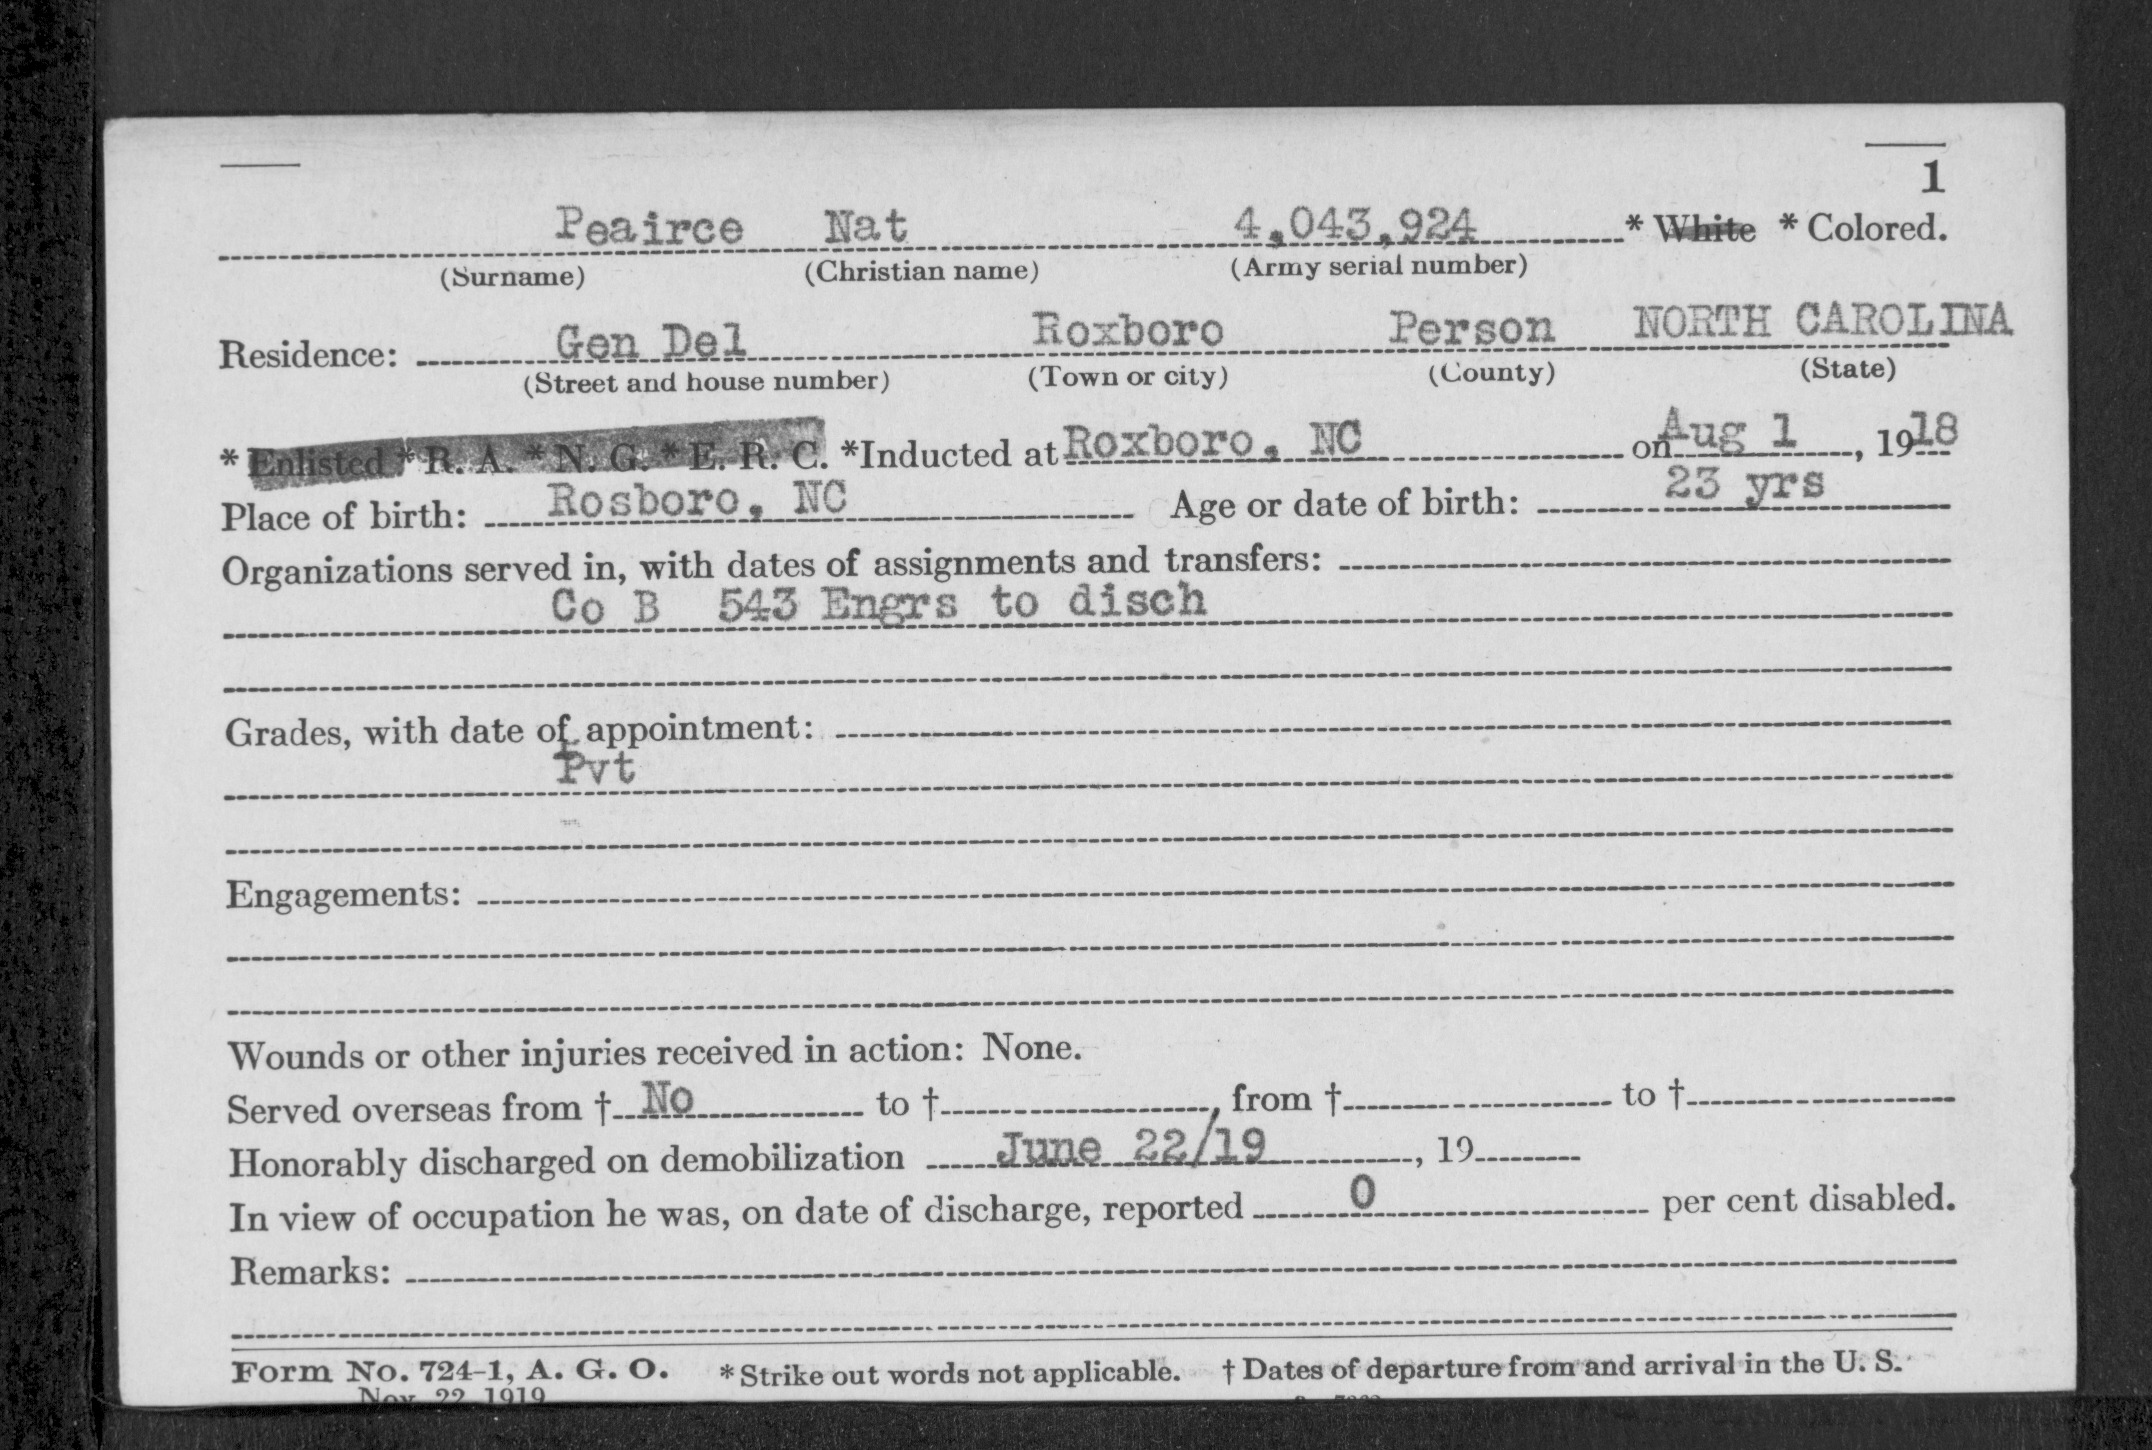 1
Peairce Nat 4,043,924 * White * Colored.
(Surname) (Christian name) (Army serial number)
Residence: Gen Del Roxboro Person NORTH CAROLINA
(Street and house number) (Town or city) (County) (State)
* Enlisted * R. A. * N. G. * E. R. C. *Inducted at Roxboro, NC on Aug 1, 1918
Place of birth: Rosboro, NC Age or date of birth: 23 yrs
Organizations served in, with dates of assignments and transfers:
Co B 543 Engrs to disch
Grades, with date of appointment:
Pvt
Engagements:
Wounds or other injuries received in action: None.
Served overseas from † No to † , from † to †
Honorably discharged on demobilization June 22/19, 19
In view of occupation he was, on date of discharge, reported 0 per cent disabled.
Remarks:
Form No. 724-1, A. G. O. * Strike out words not applicable. † Dates of departure from and arrival in the U. S.
Nov. 22, 1919